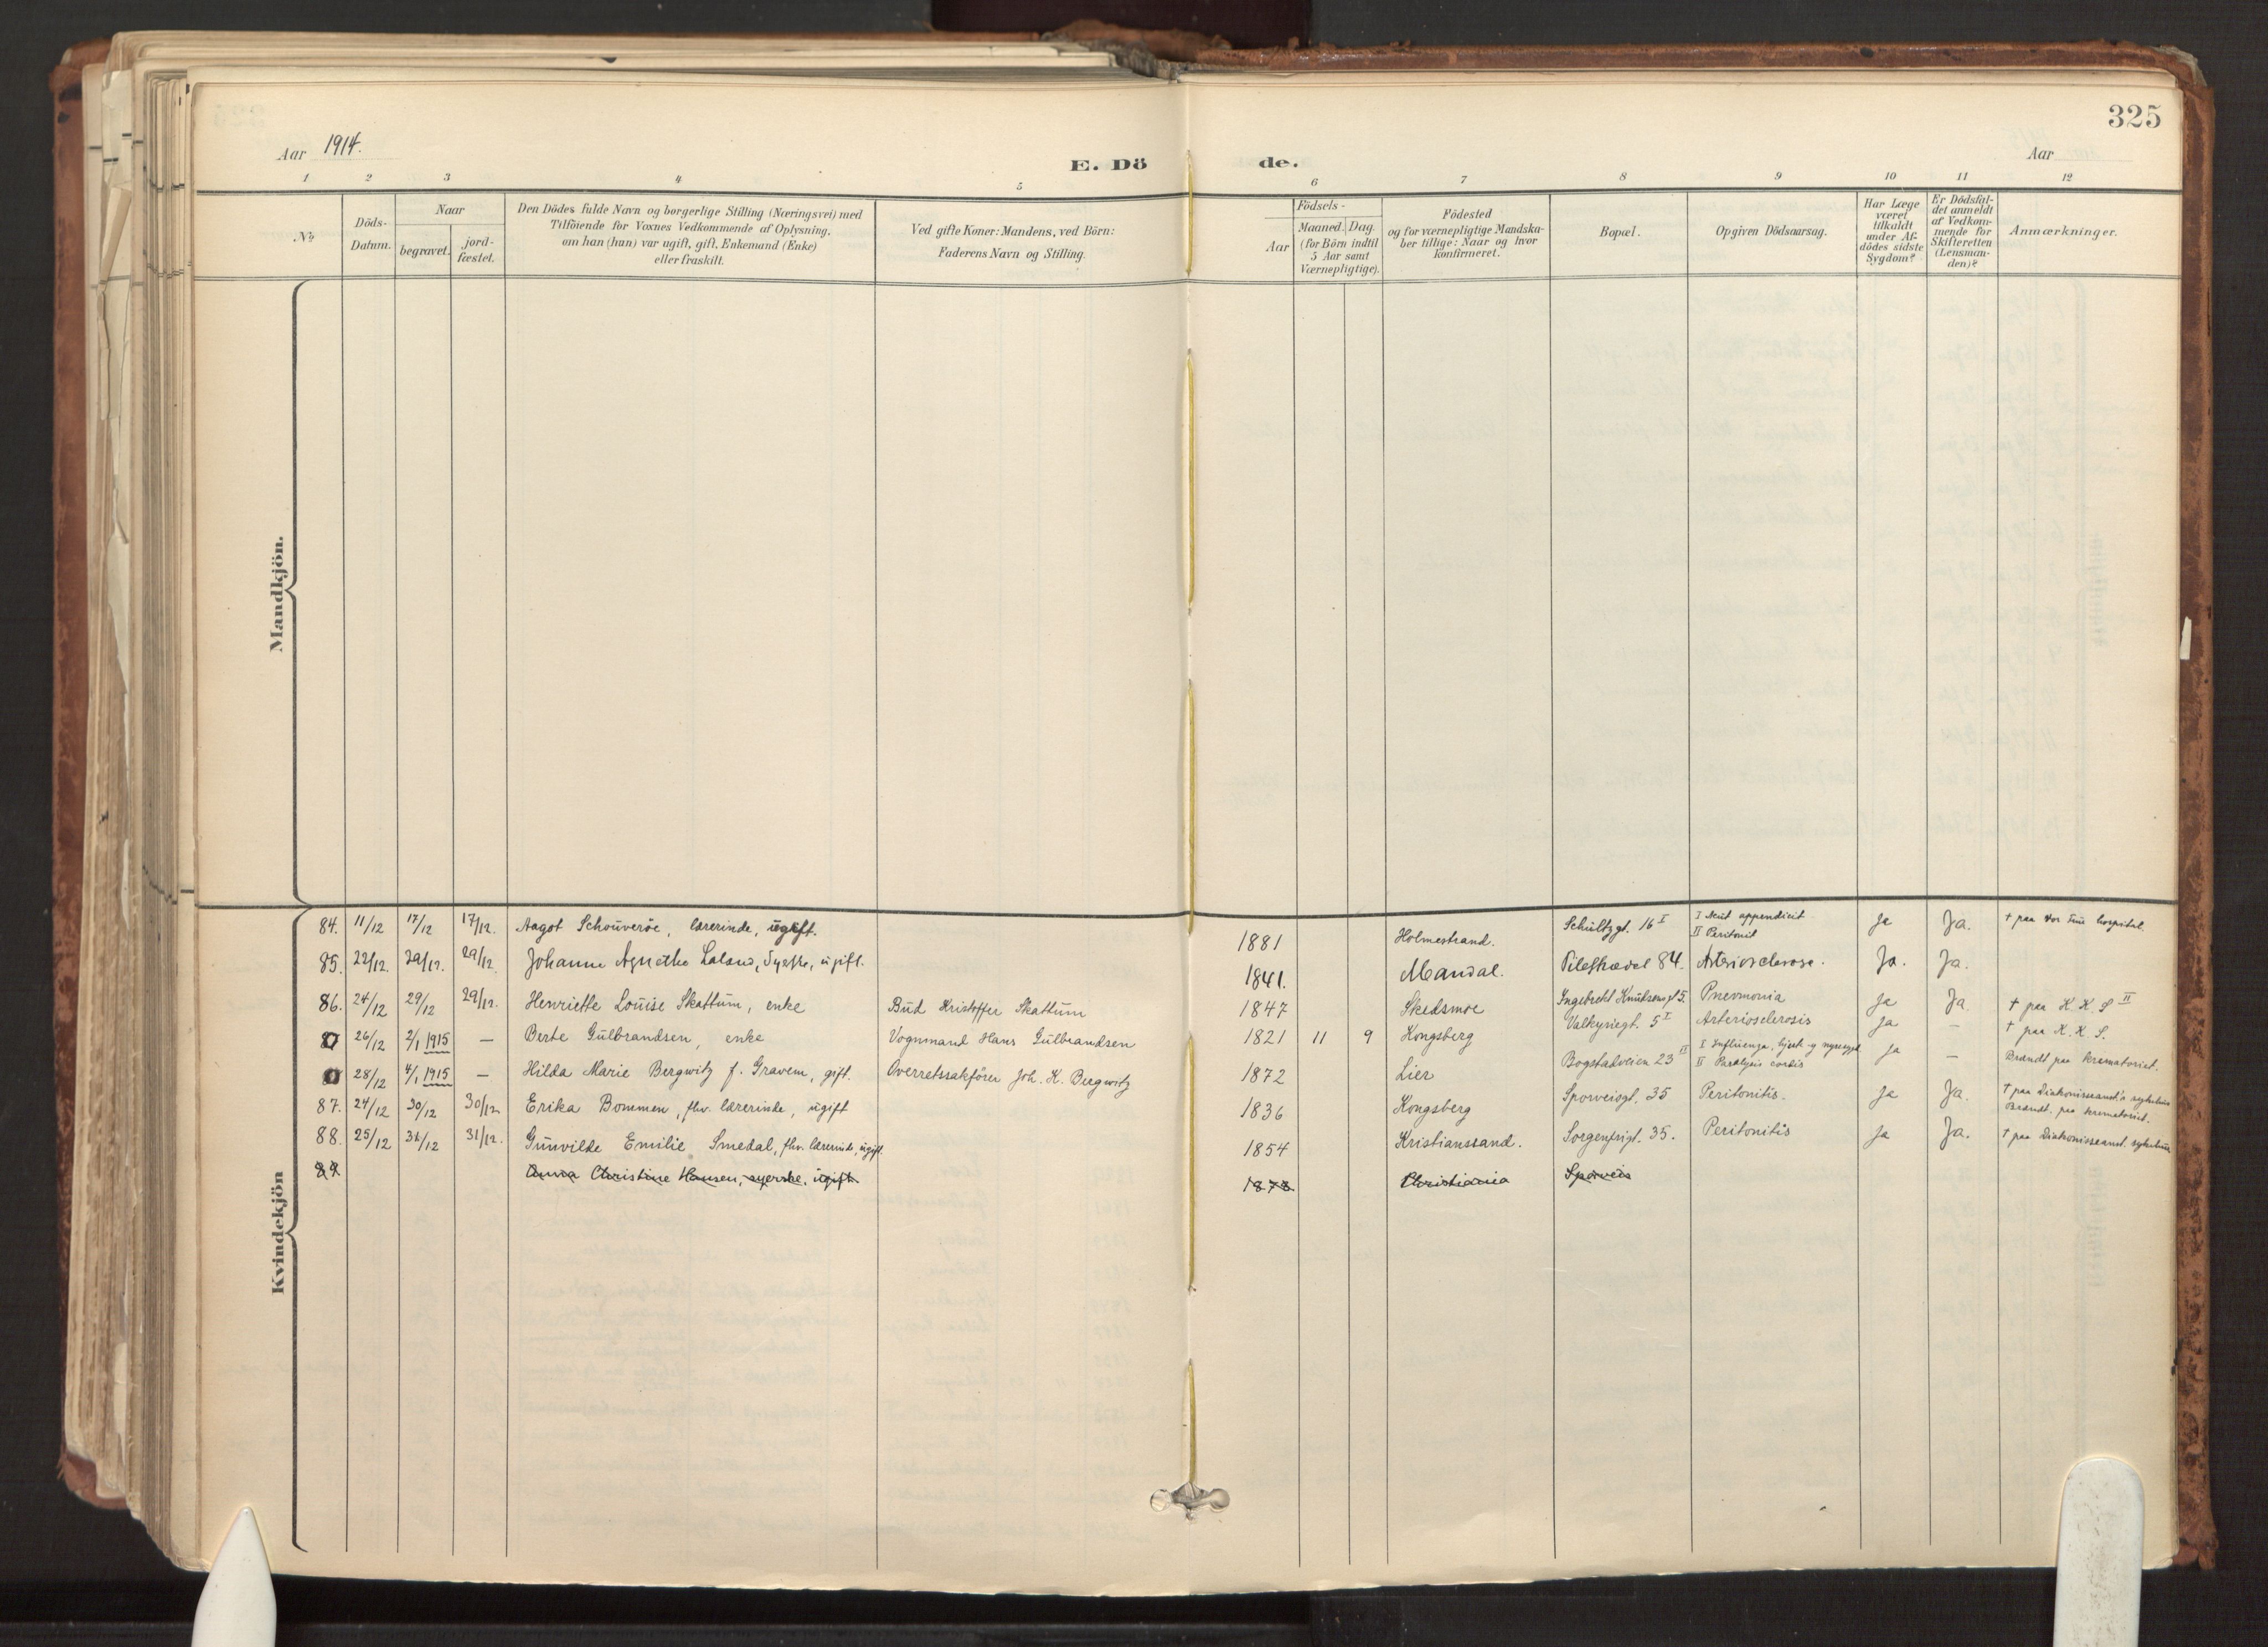 325
Aar 1914.
E. Dö de.
Aar
1 2 3 4 5 6 7 8 9 10 11 12
No
Döds-
Datum.
Naar
begravet.
jord-
fæstet.
Den Dödes fulde Navn og borgerlige Stilling (Næringsvei) med
Tilföiende for Voxnes Vedkommende af Oplysning,
om han (hun) var ugift, gift, Enkemand (Enke)
eller fraskilt.
Ved gifte Koner: Mandens, ved Börn:
Faderens Navn og Stilling.
Födsels-
Aar
Maaned. Dag.
(for Börn indtil
5 Aar samt
Værnepligtige).
Födested
og for værnepligtige Mandska-
ber tillige: Naar og hvor
konfirmeret.
Bopæl.
Opgiven Dödsaarsag.
Har Læge
været
tilkaldt
under Af-
dödes sidste
Sygdom?
Er Dödsfal-
det anmeldt
af Vedkom-
mende for
Skifteretten
(Lensman-
den)?
Anmærkninger.
Mandkjön.
Kvindekjön
84. 11/12 17/12 17/12. Aagot Schouveröe, lærerinde, ugift. 1881 Holmestrand. Schultzgt. 16 I I Akut appendicit Ja Ja. † paa Vor Frue hospital.
II Peritonit
85. 22/12. 29/12. 29/12. Johanne Agnethe Laland, Syerske, ugift. 1841. Mandal. Pilestrædet 84. Arteriosclerose. Ja. Ja.
86. 24/12 29/12 29/12. Henriette Louise Skattum, enke Bud Kristoffer Skattum 1847 Skedsmoe Ingebreckt Knudsensgt 5. Pneumonia Ja Ja † paa K. K. S II
0 26/12 2/1 1915 — Berte Gulbrandsen, enke Vognmand Hans Gulbrandsen 1821 11 9 Kongsberg Valkyriegt. 5 I Arteriosclerosis Ja — † paa K. K. S.
0 28/12 4/1 1915 — Hilda Marie Bergwitz f. Gravem, gift. Overretssakförer Joh. K. Bergwitz 1872 Lier Bogstadveien 23 II I Influenza, hjerte og nyresygd. Ja — Brændt paa krematoriet.
II Paralysis cordis
87. 24/12 30/12 30/12 Erika Bommen, fhv. lærerinde, ugift 1836 Kongsberg Sporveisgt. 35 Peritonitis. Ja Ja. † paa Diakonisseanst.s sykehus
Brændt. paa krematoriet.
88. 25/12 31/12 31/12. Gunvilde Emilie Smedal, fhv. lærerinde, ugift. 1854 Kristianssand. Sorgenfrigt. 35. Peritonitis Ja Ja. † paa Diakonisseanst. sykehus
89 Anna Christine Hansen, syerske, ugift 1878. Christiania Sporveis